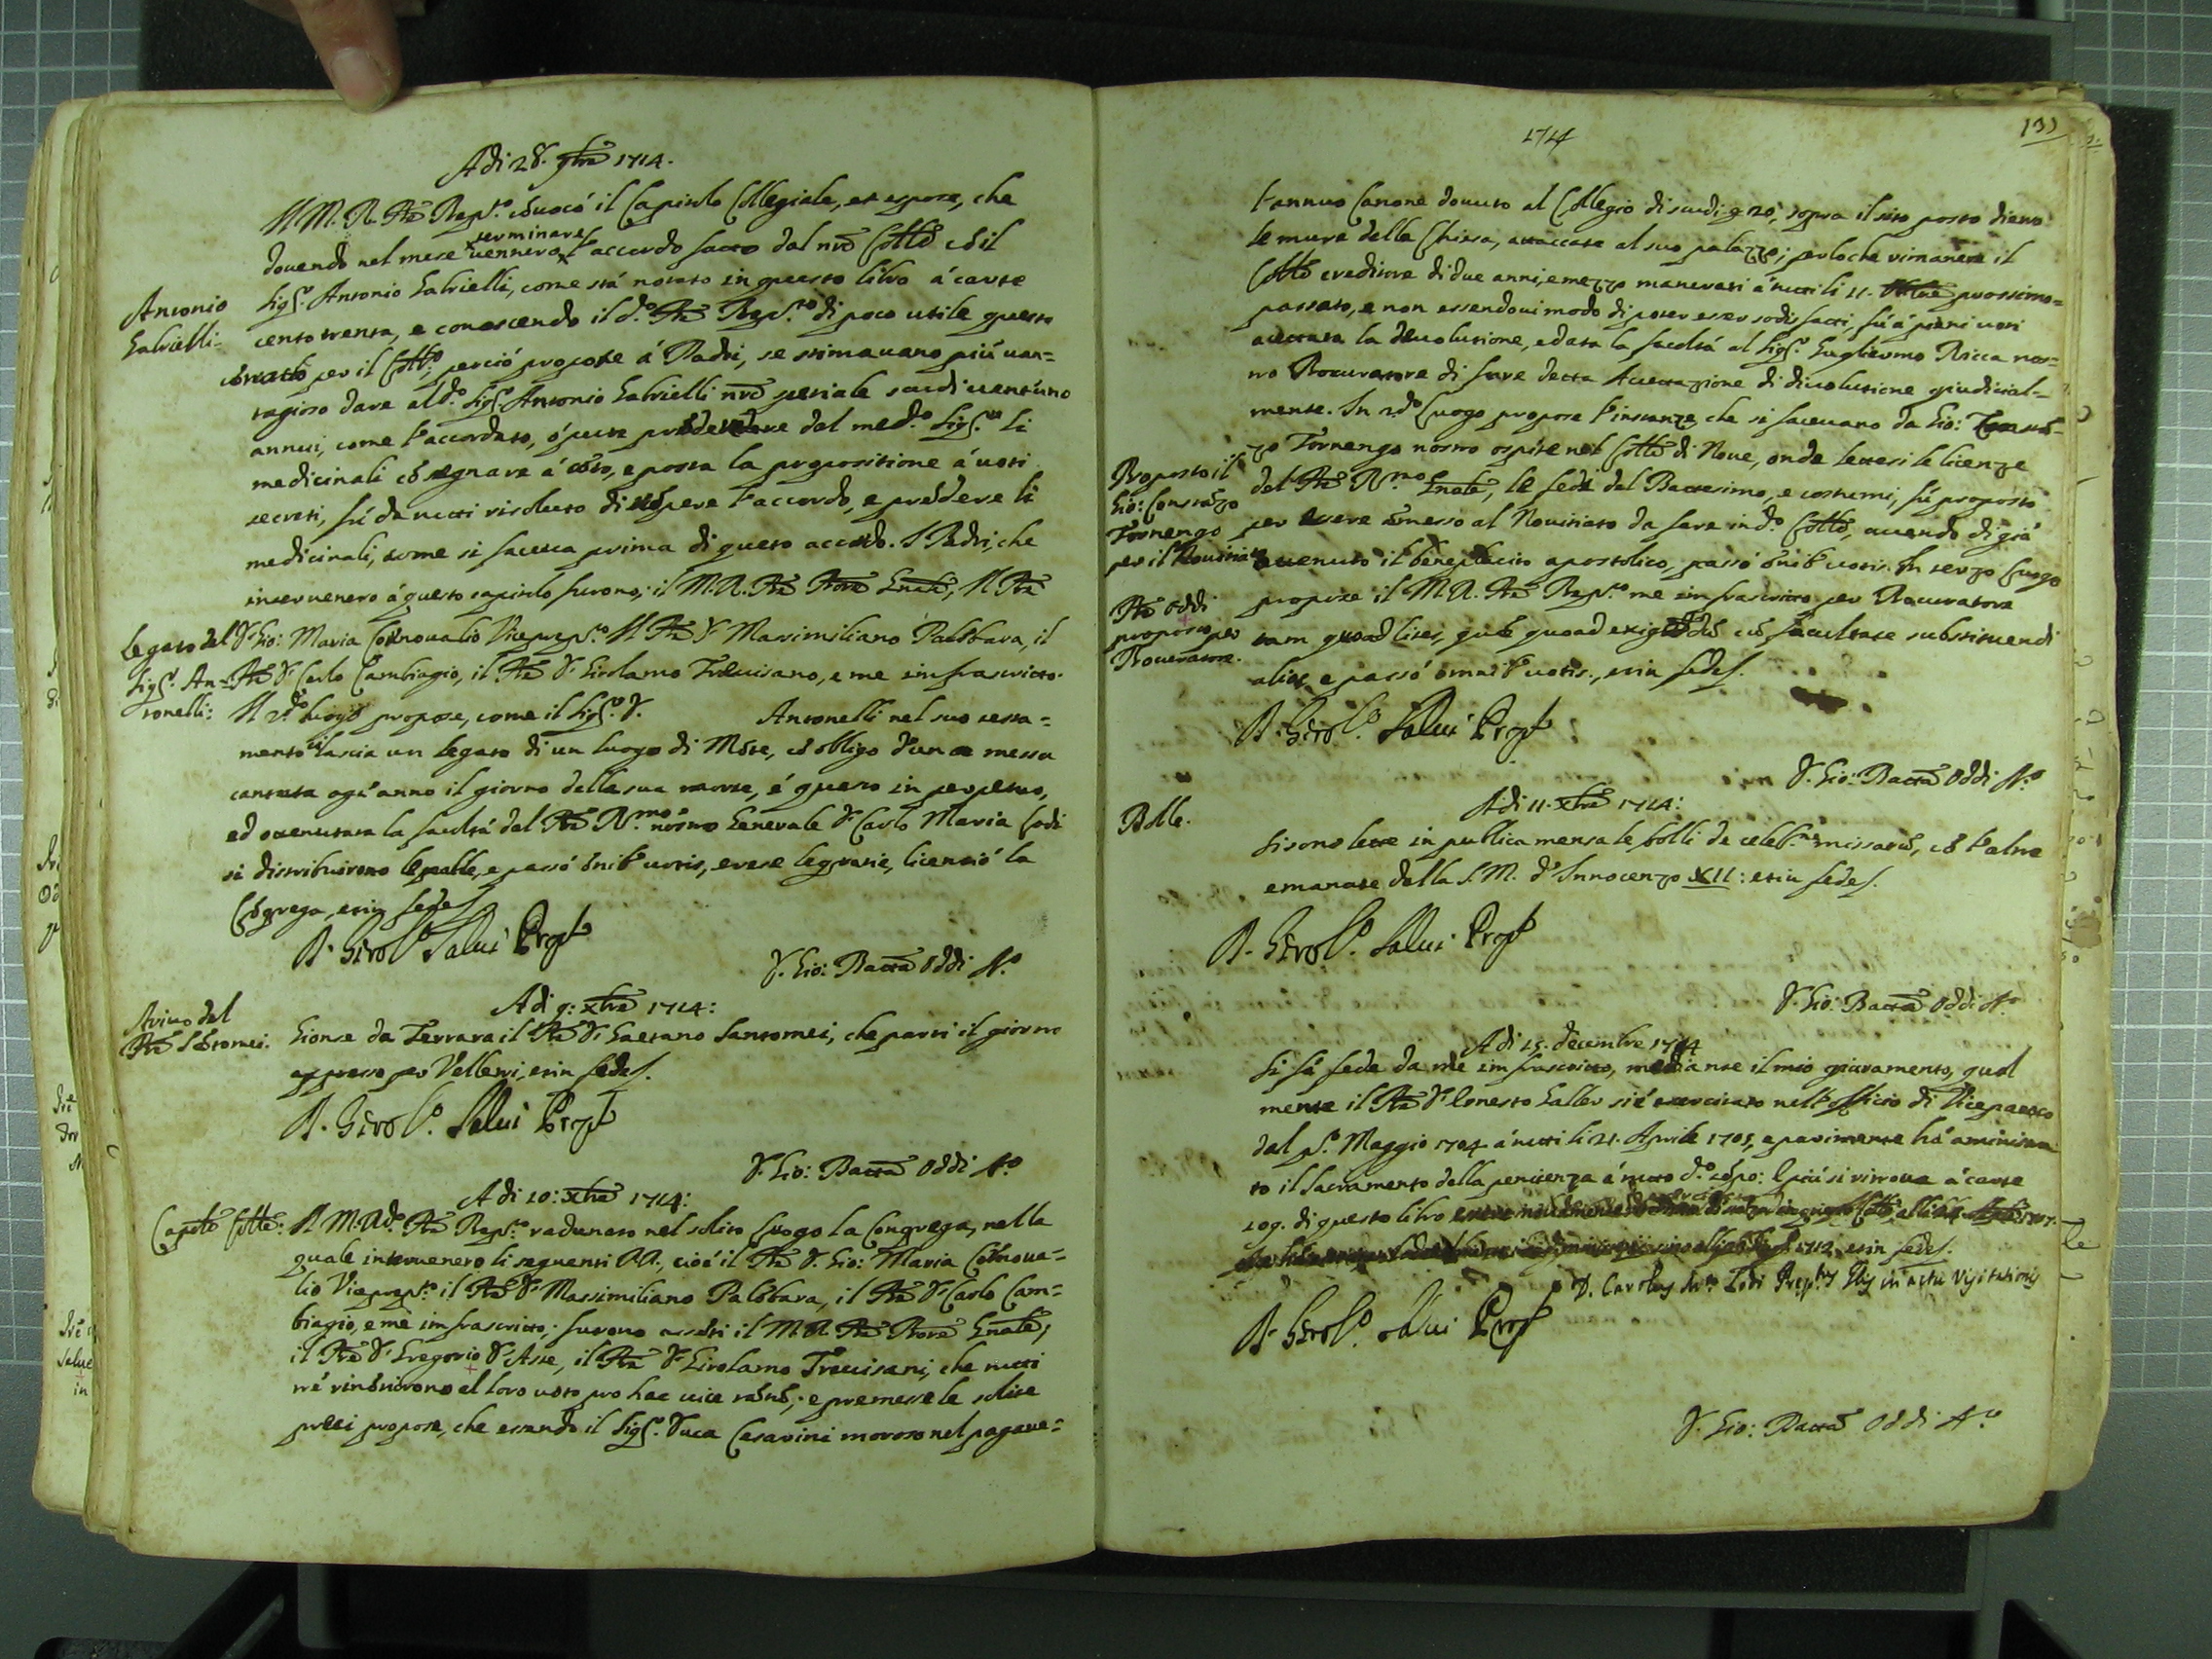 Adi 28. 9bre 1714.
Il M. R. Pre Prep.to cõuocò il Capitolo Collegiale, et espose, che
douendo nel mese uenturo terminare l'accordo fatto dal nrõ Collº cõ il
Antonio Gabrielli:
Sigr. Antonio Gabrielli, come stà notato in questo libro à carte
cento trenta, e conoscendo il d.º Pre Prep.to di poco utile questo
cõtratto per il Collº; perciò propose à Padri, se stimauano più uan=
tagioso dare al d.º Sigr. Antonio Gabrielli nrõ speziale scudi uentuno
annui, come l'accordato, ò pure prẽdere dal med.º Sigr.re li
medicinali cõ segnare à cõto, e posta la propositione à uoti
secreti, fù da tutti risoluto di rõpere l'accordo, e prẽdere li
medicinali, come si faceua prima di questo accordo. I Padri, che
interuenero à questo capitolo furono; il M. R. Pre Prore Gnale, Il Pre
Legato del Sigr. Antonelli:
D. Gio: Maria Cornoualio Viceprep.to Il Pre D. Massimiliano Palõbara, il
Pre D. Carlo Cambiagio, il Pre D. Girolamo Treuisano, e me infrascritto.
Il 2.do luogo propose, come il Sigr. D. Antonelli nel suo testa=
mento ci lascia un legato di un luogo di Mõte, cõ obligo d'una messa
cantata ogn'anno il giorno della sua morte, é questo in perpetuo,
ed ottenutasa la facoltà del Pre R.mo nostro Generale D. Carlo Maria Lodi
si distribuirono le palle, e passò õnib' uotis, e rese le gratie, licenziò la
Cõgrega, et in fede.
D. Girol.º Salui Prep.to
D. Gio: Batta Oddi A.º
Arriuo del Pre Sãtomei.
Adi 9: xbre 1714:
Gionse da Ferrara il Pre D. Gaetano Santomei, che partì il giorno
appresso per Velletri, et in fede.
D. Girol.º Salui Prep.to
D. Gio: Batta Oddi A.º
Adi 10: xbre 1714:
Capolo Colle:
Il M. R. d.º Pre Prep.to radunato nel solito luogo la Congrega, nella
quale interuenero li seguenti PP., cioè il Pre D. Gio: Maria Cõrnoua=
lio Viceprep.to il Pre D. Massimiliano Palõbara, il Pre D. Carlo Cam=
biagio, e me infrascritto; furono assẽti il M. R. Pre Prore Gnale,
il Pre D. Gregorio D. Asse, il Pre D. Girolamo Treuisani, che tutti
trè rinõtiorono al loro uoto pro hac uice tãtũ; e premesse le solite
preci propose, che essendo il Sigr. Duca Cesarini moroso nel pagare=
1714
131
l'annuo Canone douuto al Collegio di scudi 20, sopra il sito posto dietro
le mura della Chiesa, attaccate al suo palazzo; per loche rimanere il
Collº creditore di due anni, e mezzo maturati à tutti li 11. 8bre prossimo=
passato, e non essendoui modo di poter esser sodisfatti, fù à pieni uoti
accettata la deuolutione, e data la facoltà al Sigr. Guglielmo Ricca nos=
tro Procuratore di fare detta Accettazione di diuolutione giudicial=
mente. In 2.do luogo propose l'instanze, che si faceuano da Gio:
Proposto il Gio: Constãzo Tornengo per il Nouitiato
zo Tornengo nostro ospite nel Collº di Noue, onde lettesi le licenze
del Pre R.mo Gnale, le fedi del Battesimo, e costumi, fù proposto
per essere õmesso al Nouitiato da fare in d.º Collº, auendo di già
ottenuto il beneplacito apostolico, passò õnib' uotis. In terzo luogo
Pre Oddi proposto per Procuratore.
propose il M. R. Pre Prep.to me infrascritto per Procuratore
tam quoad lites, quã quoad exigẽdũ cũ facultate substituendi
alios, e passò omnib' uotis., et in fede.
D. Girol.º Salui Prep.to
D. Gio: Batta Oddi A.º
Bolle.
Adi 11. xbre 1714:
Si sono lette in publica mensa le bolli de celeb.ne missarũ, cõ l'altre
emanate della S. M. d'Innocenzo XII: et in fede.
D. Girol.º Salui Prep.to
D. Gio: Batta Oddi A.º
Adi 15. decembre 1714
Si fà fede da mè infrascritto, mediante il mio giuramento, qual
mente il Pre D. Ernesto Galler si è exercitato nell'officio di Viceparoco
dal p.º Maggio 1704 à tutti li 21. Aprile 1705, e parimente hà aministra
to il Sacramento della penitenza à tutto d.º tẽpo: E più si ritroua à carte
109. di questo libro
1712, et in fede.
D. Carolus M.a Lodi Prep.tus Glis in actu Visitationis
D. Girol.º Salui Prep.to
D. Gio: Batta Oddi A.º